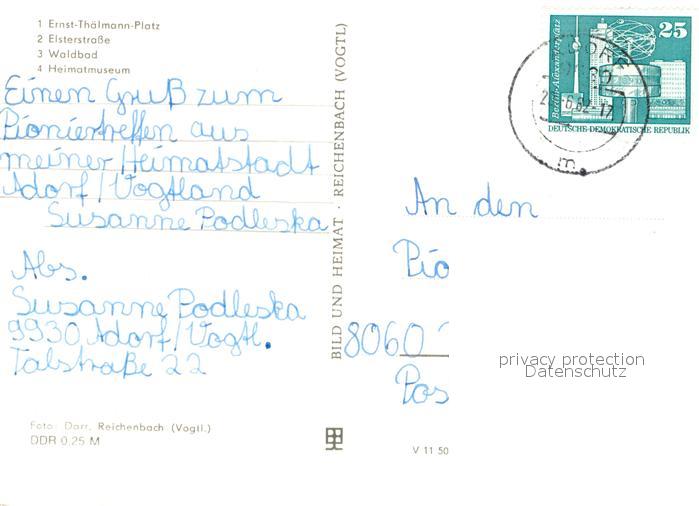 1 Ernst-Thälmann-Platz
2 Elsterstraße
3 Waldbad
4 Heimatmuseum
Einen Gruß zum
Pioniertreffen aus
meiner Heimatstadt
Adorf/Vogtland
Susanne Podleska
Abs.
Susanne Podleska
9930 Adorf/Vogtl.
Talstraße 22
Foto: Darr, Reichenbach (Vogtl.)
DDR 0,25 M
BILD UND HEIMAT · REICHENBACH (VOGTL)
V 11 50
Berlin-Alexanderplatz
25
DEUTSCHE·DEMOKRATISCHE REPUBLIK
m
An den
Pio
8060
Pos
privacy protection
Datenschutz